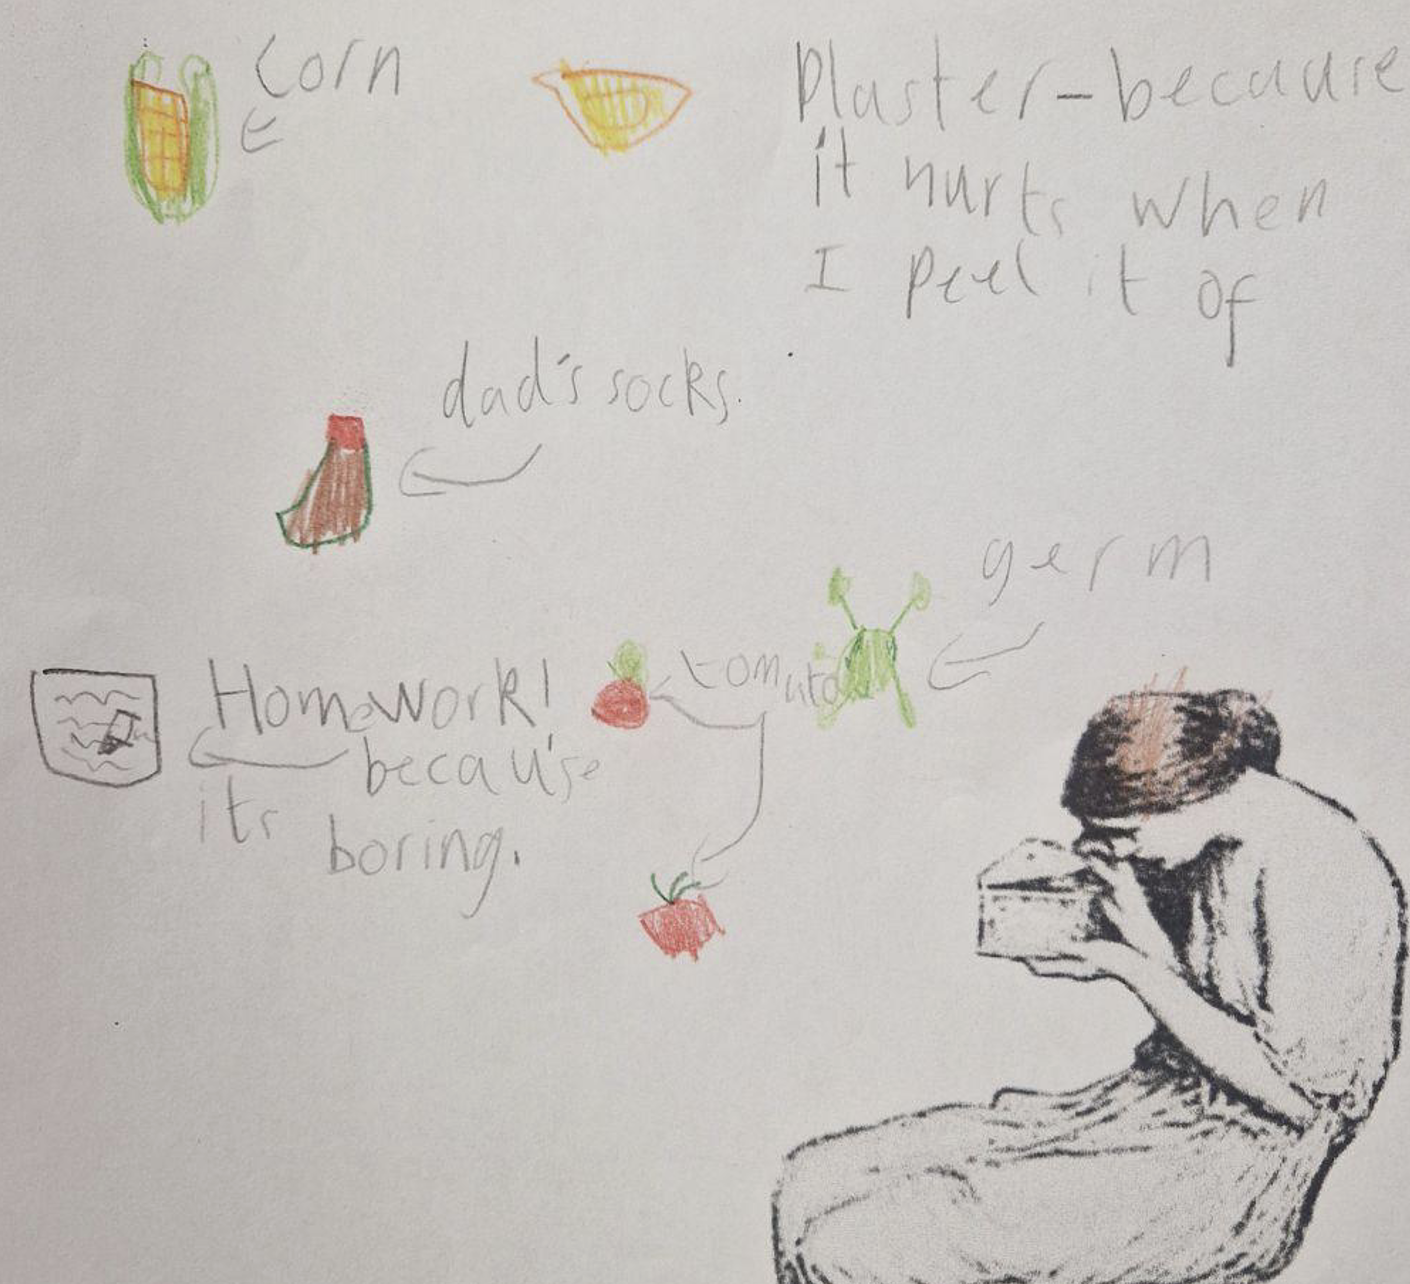 Corn
Plaster - because
it hurts when
I peel it of
dad's socks.
germ
tomato
Homework!
because
its
boring.